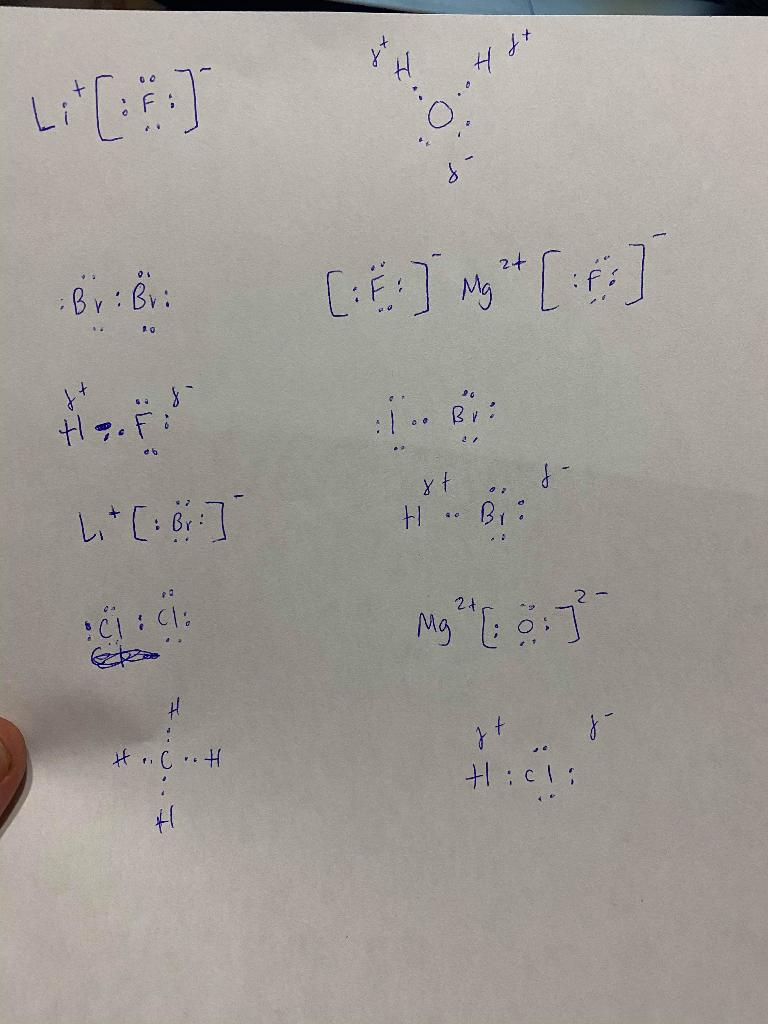 Li⁺ [:F:]⁻
δ⁺ H H δ⁺
O
δ⁻
:Br:Br:
[:F:]⁻ Mg²⁺ [:F:]⁻
δ⁺ δ⁻
H : F:
:I··Br:
Li⁺ [:Br:]⁻
δ+ δ-
H ·· Br:
:Cl:Cl:
Mg²⁺ [:O:]²⁻
H
H ·· C ·· H
H
δ+ δ-
H:Cl: